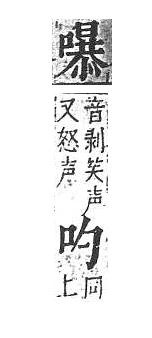 㬥
音剥笑声
又怒声
吻
同上